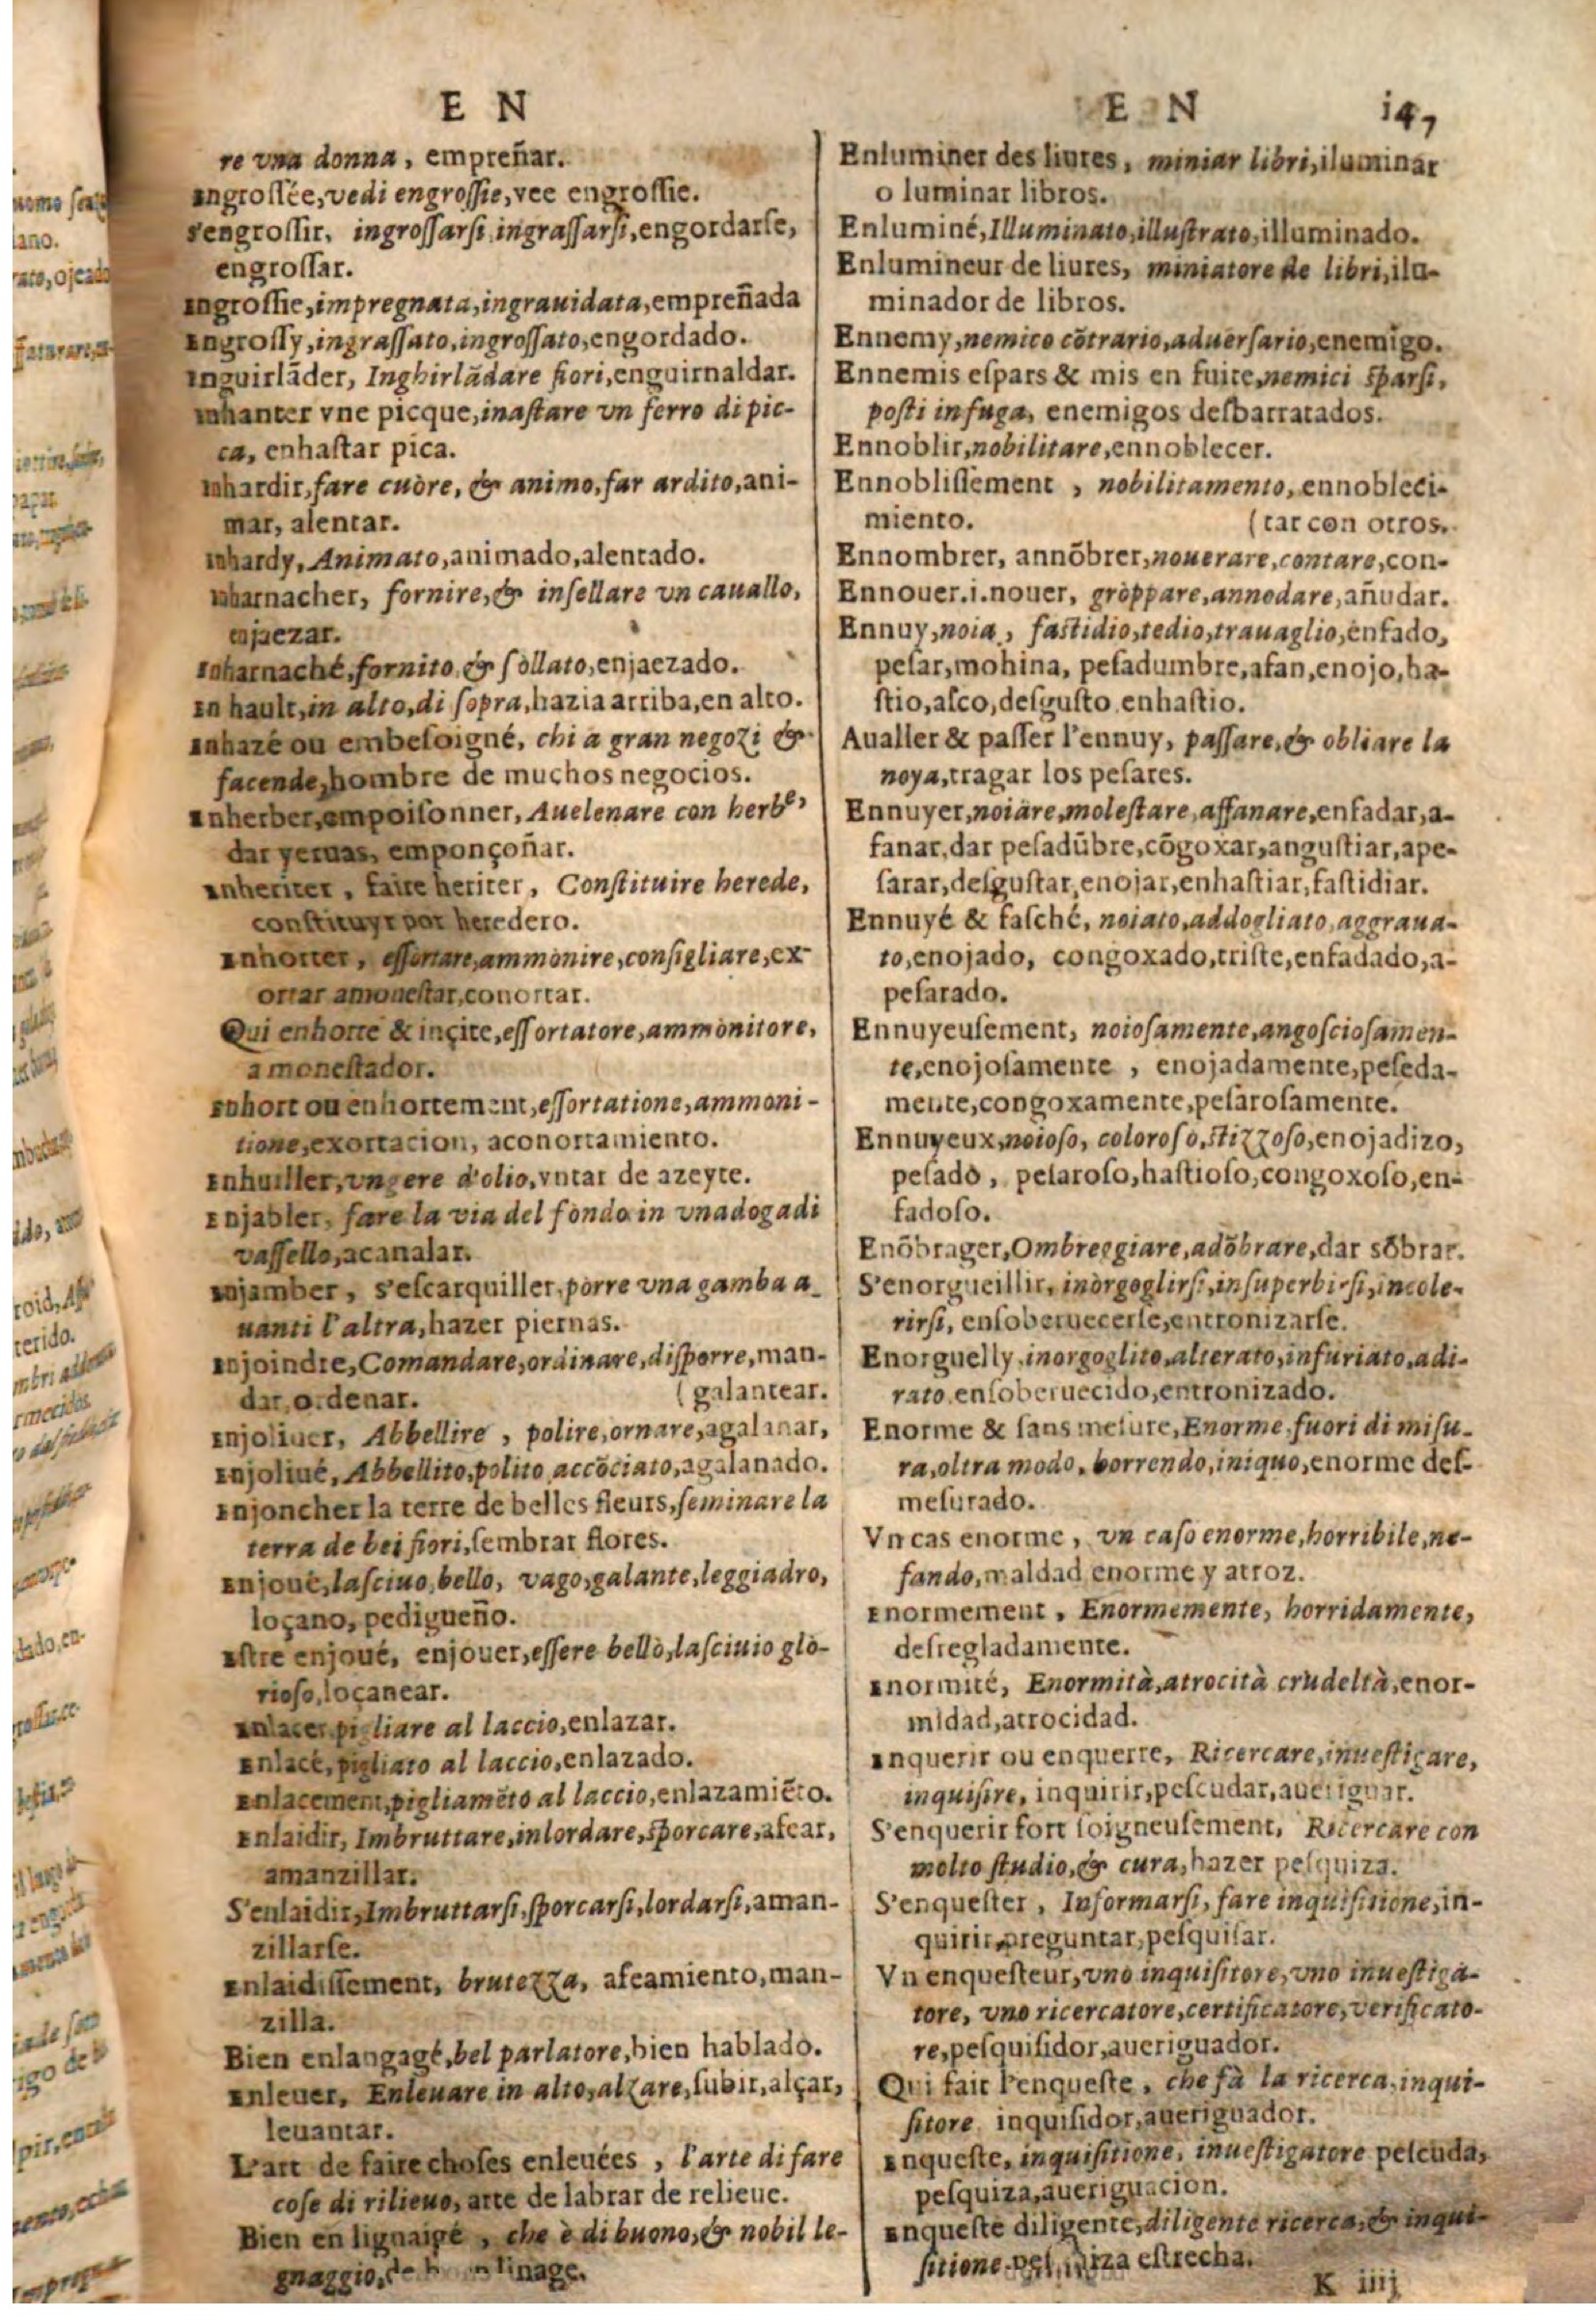 E N
re vna donna, empreñar.
Engrossée, vedi engrossie, vee engrossie.
s'engrossir, ingrossarsi, ingrassarsi, engordarse,
engrossar.
Engrossie, impregnata, ingrauidata, empreñada
Engrossy, ingrassato, ingrossato, engordado.
Enguirlãder, Inghirlãdare fiori, enguirnaldar.
Enhanter vne picque, inastare vn ferro di pic-
ca, enhastar pica.
Enhardir, fare cuòre, & animo, far ardito, ani-
mar, alentar.
Enhardy, Animato, animado, alentado.
Enharnacher, fornire, & insellare vn cauallo,
enjaezar.
Enharnaché, fornito, & sollato, enjaezado.
En hault, in alto, di sopra, hazia arriba, en alto.
Enhazé ou embesoigné, chi a gran negozi &
facende, hombre de muchos negocios.
Enherber, empoisonner, Auelenare con herbe,
dar yeruas, emponçoñar.
Enheriter, faire heriter, Constituire herede,
constituyr por heredero.
Enhorter, essortare, ammonire, consigliare, ex-
ortar amonestar, conortar.
Qui enhorte & inçite, essortatore, ammonitore,
amonestador.
Enhort ou enhortement, essortatione, ammoni-
tione, exortacion, aconortamiento.
Enhuiller, vngere d'olio, vntar de azeyte.
Enjabler, fare la via del fondo in vna doga di
vassello, acanalar.
Enjamber, s'escarquiller, porre vna gamba a_
uanti l'altra, hazer piernas.
Enjoindre, Comandare, ordinare, disporre, man-
dar, ordenar. (galantear.
Enjoliuer, Abbellire, polire, ornare, agalanar,
Enjoliué, Abbellito, polito accõciato, agalanado.
Enjoncher la terre de belles fleurs, seminare la
terra de bei fiori, sembrar flores.
Enjoué, lasciuo, bello, vago, galante, leggiadro,
loçano, pedigueño.
Estre enjoué, enjouer, essere bello, lasciuio glo-
rioso, loçanear.
Enlacer, pigliare al laccio, enlazar.
Enlacé, pigliato al laccio, enlazado.
Enlacement, pigliamẽto al laccio, enlazamiẽto.
Enlaidir, Imbruttare, inlordare, sporcare, afear,
amanzillar.
S'enlaidir, Imbruttarsi, sporcarsi, lordarsi, aman-
zillarse.
Enlaidissement, brutezza, afeamiento, man-
zilla.
Bien enlangagé, bel parlatore, bien hablado.
Enleuer, Enleuare in alto, alzare, subir, alçar,
leuantar.
L'art de faire choses enleuées, l'arte di fare
cose di rilieuo, arte de labrar de relieue.
Bien en lignaige, che è di buono, & nobil le-
gnaggio, de linage.
E N 147
Enluminer des liures, miniar libri, iluminar
o luminar libros.
Enluminé, Illuminato, illustrato, illuminado.
Enlumineur de liures, miniatore de libri, ilu-
minador de libros.
Ennemy, nemico cõtrario, aduersario, enemigo.
Ennemis espars & mis en fuite, nemici sparsi,
posti in fuga, enemigos desbarratados.
Ennoblir, nobilitare, ennoblecer.
Ennoblissement, nobilitamento, ennobleci-
miento. (tar con otros.
Ennombrer, annõbrer, nouerare, contare, con-
Ennouer.i.nouer, gròppare, annodare, añudar.
Ennuy, noia, fastidio, tedio, trauaglio, enfado,
pesar, mohina, pesadumbre, afan, enojo, ha-
stio, asco, desgusto, enhastio.
Aualler & passer l'ennuy, passare, & obliare la
noya, tragar los pesares.
Ennuyer, noiare, molestare, affanare, enfadar, a-
fanar, dar pesadũbre, cõgoxar, angustiar, ape-
sarar, desgustar, enojar, enhastiar, fastidiar.
Ennuyé & fasché, noiato, addogliato, aggraua-
to, enojado, congoxado, triste, enfadado, a-
pesarado.
Ennuyeusement, noiosamente, angosciosamen-
te, enojosamente, enojadamente, peseda-
mente, congoxamente, pesarosamente.
Ennuyeux, noioso, coloroso, stizzoso, enojadizo,
pesado, pesaroso, hastioso, congoxoso, en-
fadoso.
Enõbrager, Ombreggiare, adõbrare, dar sõbrar.
S'enorgueillir, inòrgoglirsi, insuperbirsi, incole-
rirsi, ensoberuecerse, entronizarse.
Enorguelly, inorgoglito, alterato, infuriato, adi-
rato, ensoberuecido, entronizado.
Enorme & sans mesure, Enorme, fuori di misu-
ra, oltra modo, horrendo, iniquo, enorme des-
mesurado.
Vn cas enorme, vn caso enorme, horribile, ne-
fando, maldad enorme y atroz.
Enormement, Enormemente, horridamente,
desregladamente.
Enormité, Enormità, atrocità crudeltà, enor-
midad, atrocidad.
Enquerir ou enquerre, Ricercare, inuestigare,
inquisire, inquirir, pescudar, aueriguar.
S'enquerir fort soigneusement, Ricercare con
molto studio, & cura, hazer pesquiza.
S'enquester, Informarsi, fare inquisitione, in-
quirir, preguntar, pesquisar.
Vn enquesteur, vno inquisitore, vno inuestiga-
tore, vno ricercatore, certificatore, verificato-
re, pesquisidor, aueriguador.
Qui fait l'enqueste, che fà la ricerca, inqui-
sitore, inquisidor, aueriguador.
Enqueste, inquisitione, inuestigatore pescuda,
pesquiza, aueriguacion.
Enqueste diligente, diligente ricerca, & inqui-
sitione, pesquiza estrecha.
K iiij